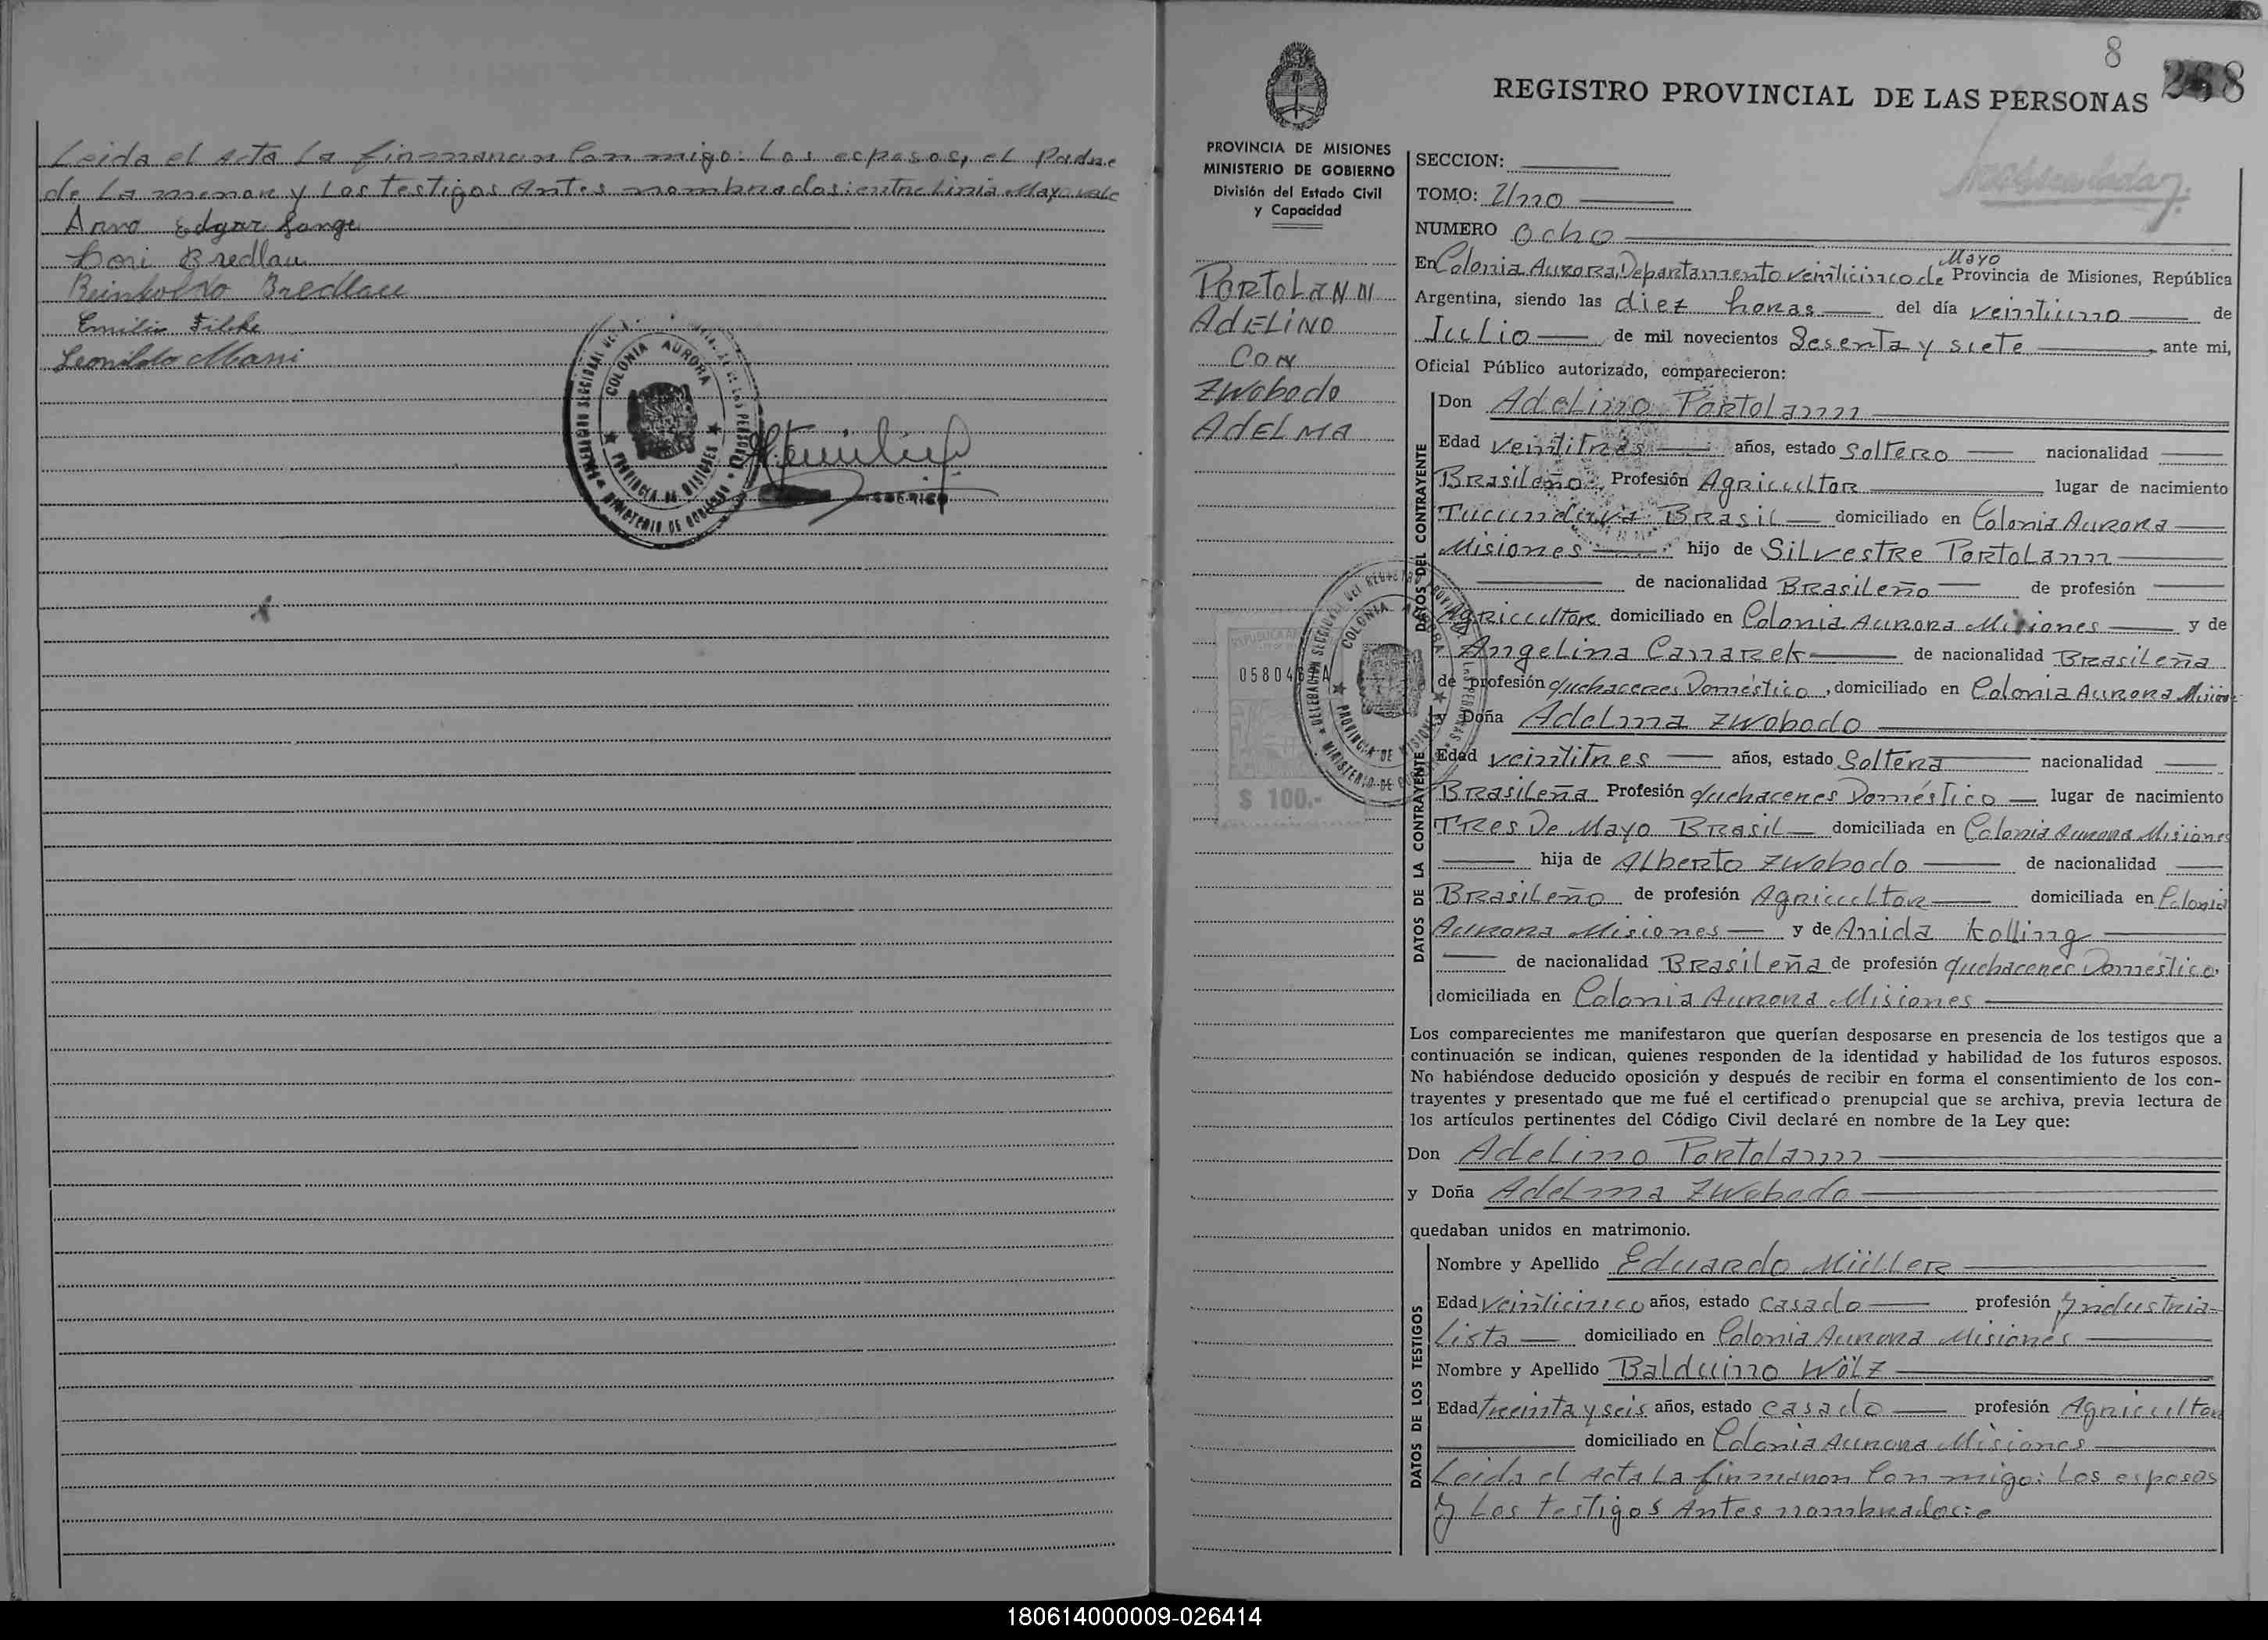 Leida el Acta la firmaran con migo: los esposos, el Padre
de la menor y los testigos antes nombrados: entre linia Mayo vale
Arno Edgar Lange
Lori Bredlau
Reinholdo Bredlau
Emilio Filcke
Leonildo Massi
COLONIA AURORA
PROVINCIA DE MISIONES
MINISTERIO DE GOBIERNO
8
268
REGISTRO PROVINCIAL DE LAS PERSONAS
PROVINCIA DE MISIONES
MINISTERIO DE GOBIERNO
División del Estado Civil
y Capacidad
PORTOLANN
ADELINO
CON
ZWobodo
ADELMA
REPUBLICA
05804
$ 100.-
DELEGACION SECCIONAL DEL REGISTRO PROVINCIAL DE LAS PERSONAS
COLONIA AURORA
PROVINCIA DE MISIONES
MINISTERIO DE
SECCION:
TOMO: Uno
NUMERO Ocho
Mayo
En Colonia Aurora, Departamento veinticinco de Provincia de Misiones, República
Argentina, siendo las diez horas del día veintiuno de
Julio de mil novecientos Sesenta y siete, ante mi,
Oficial Público autorizado, comparecieron:
DATOS DEL CONTRAYENTE
Don Adelino Portolann
Edad veintitres años, estado Soltero nacionalidad
Brasileño, Profesión Agricultor lugar de nacimiento
Tucunduva Brasil domiciliado en Colonia Aurora
Misiones hijo de Silvestre Portolann
de nacionalidad Brasileño de profesión
Agricultor domiciliado en Colonia Aurora Misiones y de
Angelina Canarek de nacionalidad Brasileña
de profesión quehaceres Doméstico, domiciliado en Colonia Aurora Misiones
DATOS DE LA CONTRAYENTE
y Doña Adelma Zwobodo
Edad veintitres años, estado Soltera nacionalidad
Brasileña Profesión quehaceres Doméstico lugar de nacimiento
Tres De Mayo Brasil domiciliada en Colonia Aurora Misiones
hija de Alberto Zwobodo de nacionalidad
Brasileño de profesión Agricultor domiciliada en Colonia
Aurora Misiones y de Anida Kolling
de nacionalidad Brasileña de profesión quehaceres Doméstico,
domiciliada en Colonia Aurora Misiones
Los comparecientes me manifestaron que querían desposarse en presencia de los testigos que a
continuación se indican, quienes responden de la identidad y habilidad de los futuros esposos.
No habiéndose deducido oposición y después de recibir en forma el consentimiento de los con-
trayentes y presentado que me fué el certificado prenupcial que se archiva, previa lectura de
los artículos pertinentes del Código Civil declaré en nombre de la Ley que:
Don Adelino Portolann
y Doña Adelma Zwobodo
quedaban unidos en matrimonio.
DATOS DE LOS TESTIGOS
Nombre y Apellido Eduardo Müller
Edad veinticinco años, estado casado profesión Industria-
lista domiciliado en Colonia Aurora Misiones
Nombre y Apellido Balduino Wölz
Edad treinta y seis años, estado casado profesión Agricultor
domiciliado en Colonia Aurora Misiones
Leida el Acta la firmaron con migo: los esposos
y los testigos antes nombrados:e
180614000009-026414